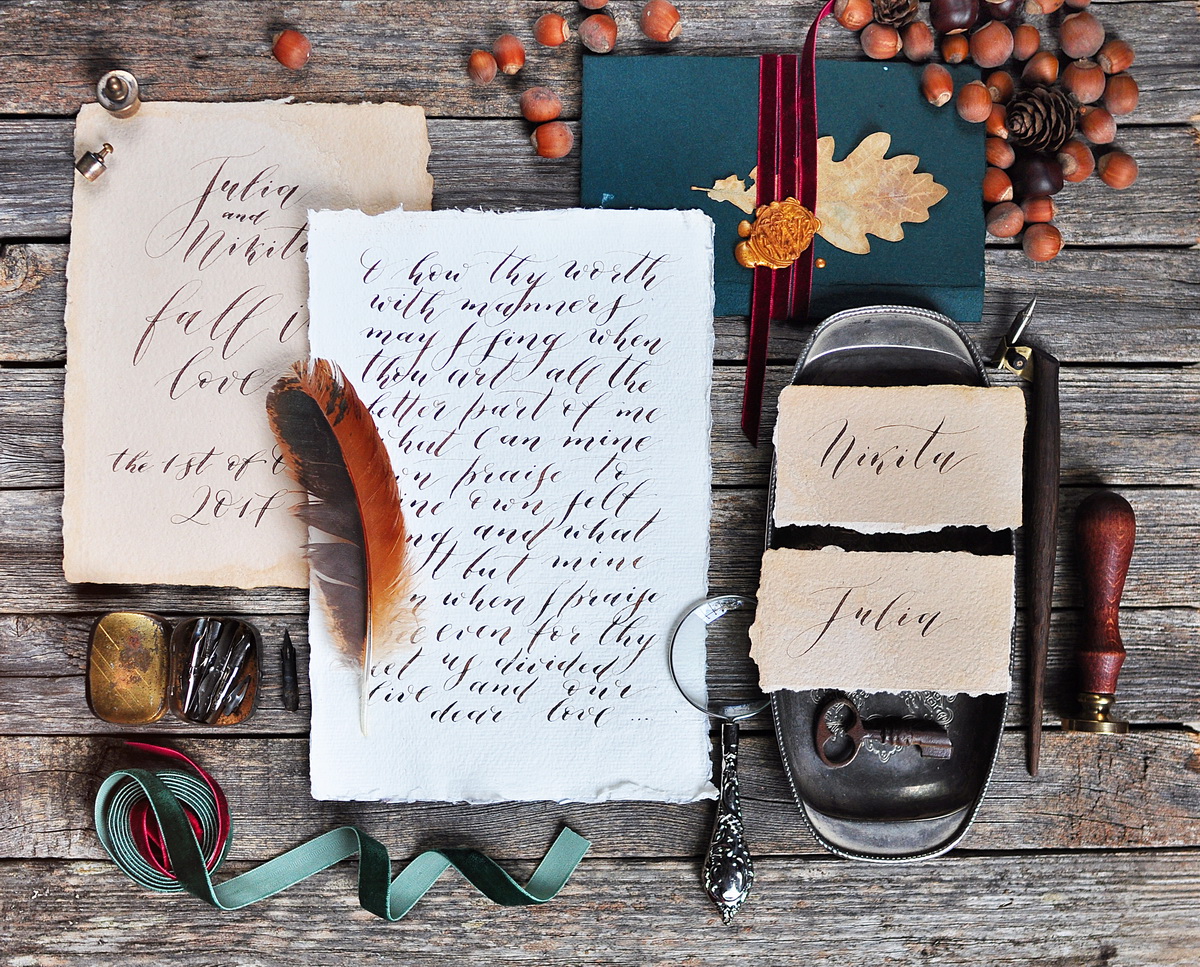 Julia
and
Nikita
fall
love
the 1st of
2017
O how thy worth
with manners
may I sing when
thou art all the
better part of me
can mine
praise to
own self
and what
but mine
when I praise
even for thy
us divided
live and our
dear love ...
Nikita
Julia